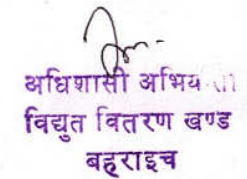 अधिशासी अभिय
विद्युत वितरण खण्ड
बहराइच